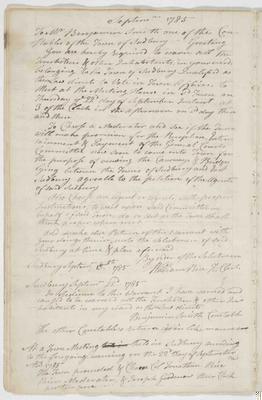 Septemr 1785
To Mr Benjamin Smith one of the Con-
stables of the Town of Sudbury Greeting
You are hereby required to warn all the
Freeholders & other Inhabitants, in your ward,
belonging to sd Town of Sudbury Qualified as
the Law directs to Vote in Town Affairs to
Meet at the Meeting House in sd Town on
Thursday ye 22d day of September Instant at
3 of the Clock in the Afternoon on sd day then
and there
To Choose a Moderator and see if the town
will make provision for the
& Payment of the General Courts
Committee who are to come into Town for
the purpose of viewing the Causway & Bridge
lying between the Towns of Sudbury and East
Sudbury agreeable to the petition of the Agents
of said Sudbury
Also Choose an agent or agents with proper
Instructions to wait upon said Committee in
behalf of said Town or to act as the Town shall
think proper when met
And make due Return of this warrant with
your doings therein unto the selectmen of said
Sudbury at time & place aforesaid
By order of the Selectmen
Sudbury Septemr 1785
William Rice Tn Clerk
Sudbury Septemr 1785
In Obedience to the warrant I have warned and
caused to be warned all the Freeholders & other In-
habitants in my ward as therein directed
Benjamin Smith Constable
The other Constables return in like manner
At a Town Meeting held in Sudbury according
to the foregoing warning on the 22d day of September
1785
The Town proceeded & Chose Jonathan Rice
Moderator, & Joseph Goodnow Clerk